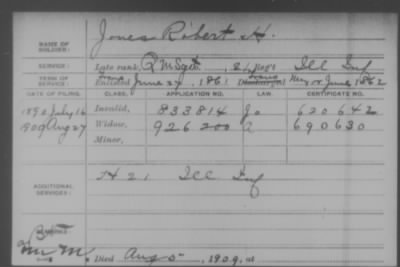 Jones Robert H.
NAME OF SOLDIER:
SERVICE: Late rank, Q M Sgt, Reg't Ill Inf
TERM OF SERVICE: Enlisted June 24, 186 June 1862
DATE OF FILING. CLASS. APPLICATION NO. LAW. CERTIFICATE NO.
1890 July 16 Invalid, 833814 620642
1909 Aug 27 Widow, 926200 690630
Minor,
ADDITIONAL SERVICES: F+S 21 Ill Inf
REMARKS:
Died Aug 5, 1909, at